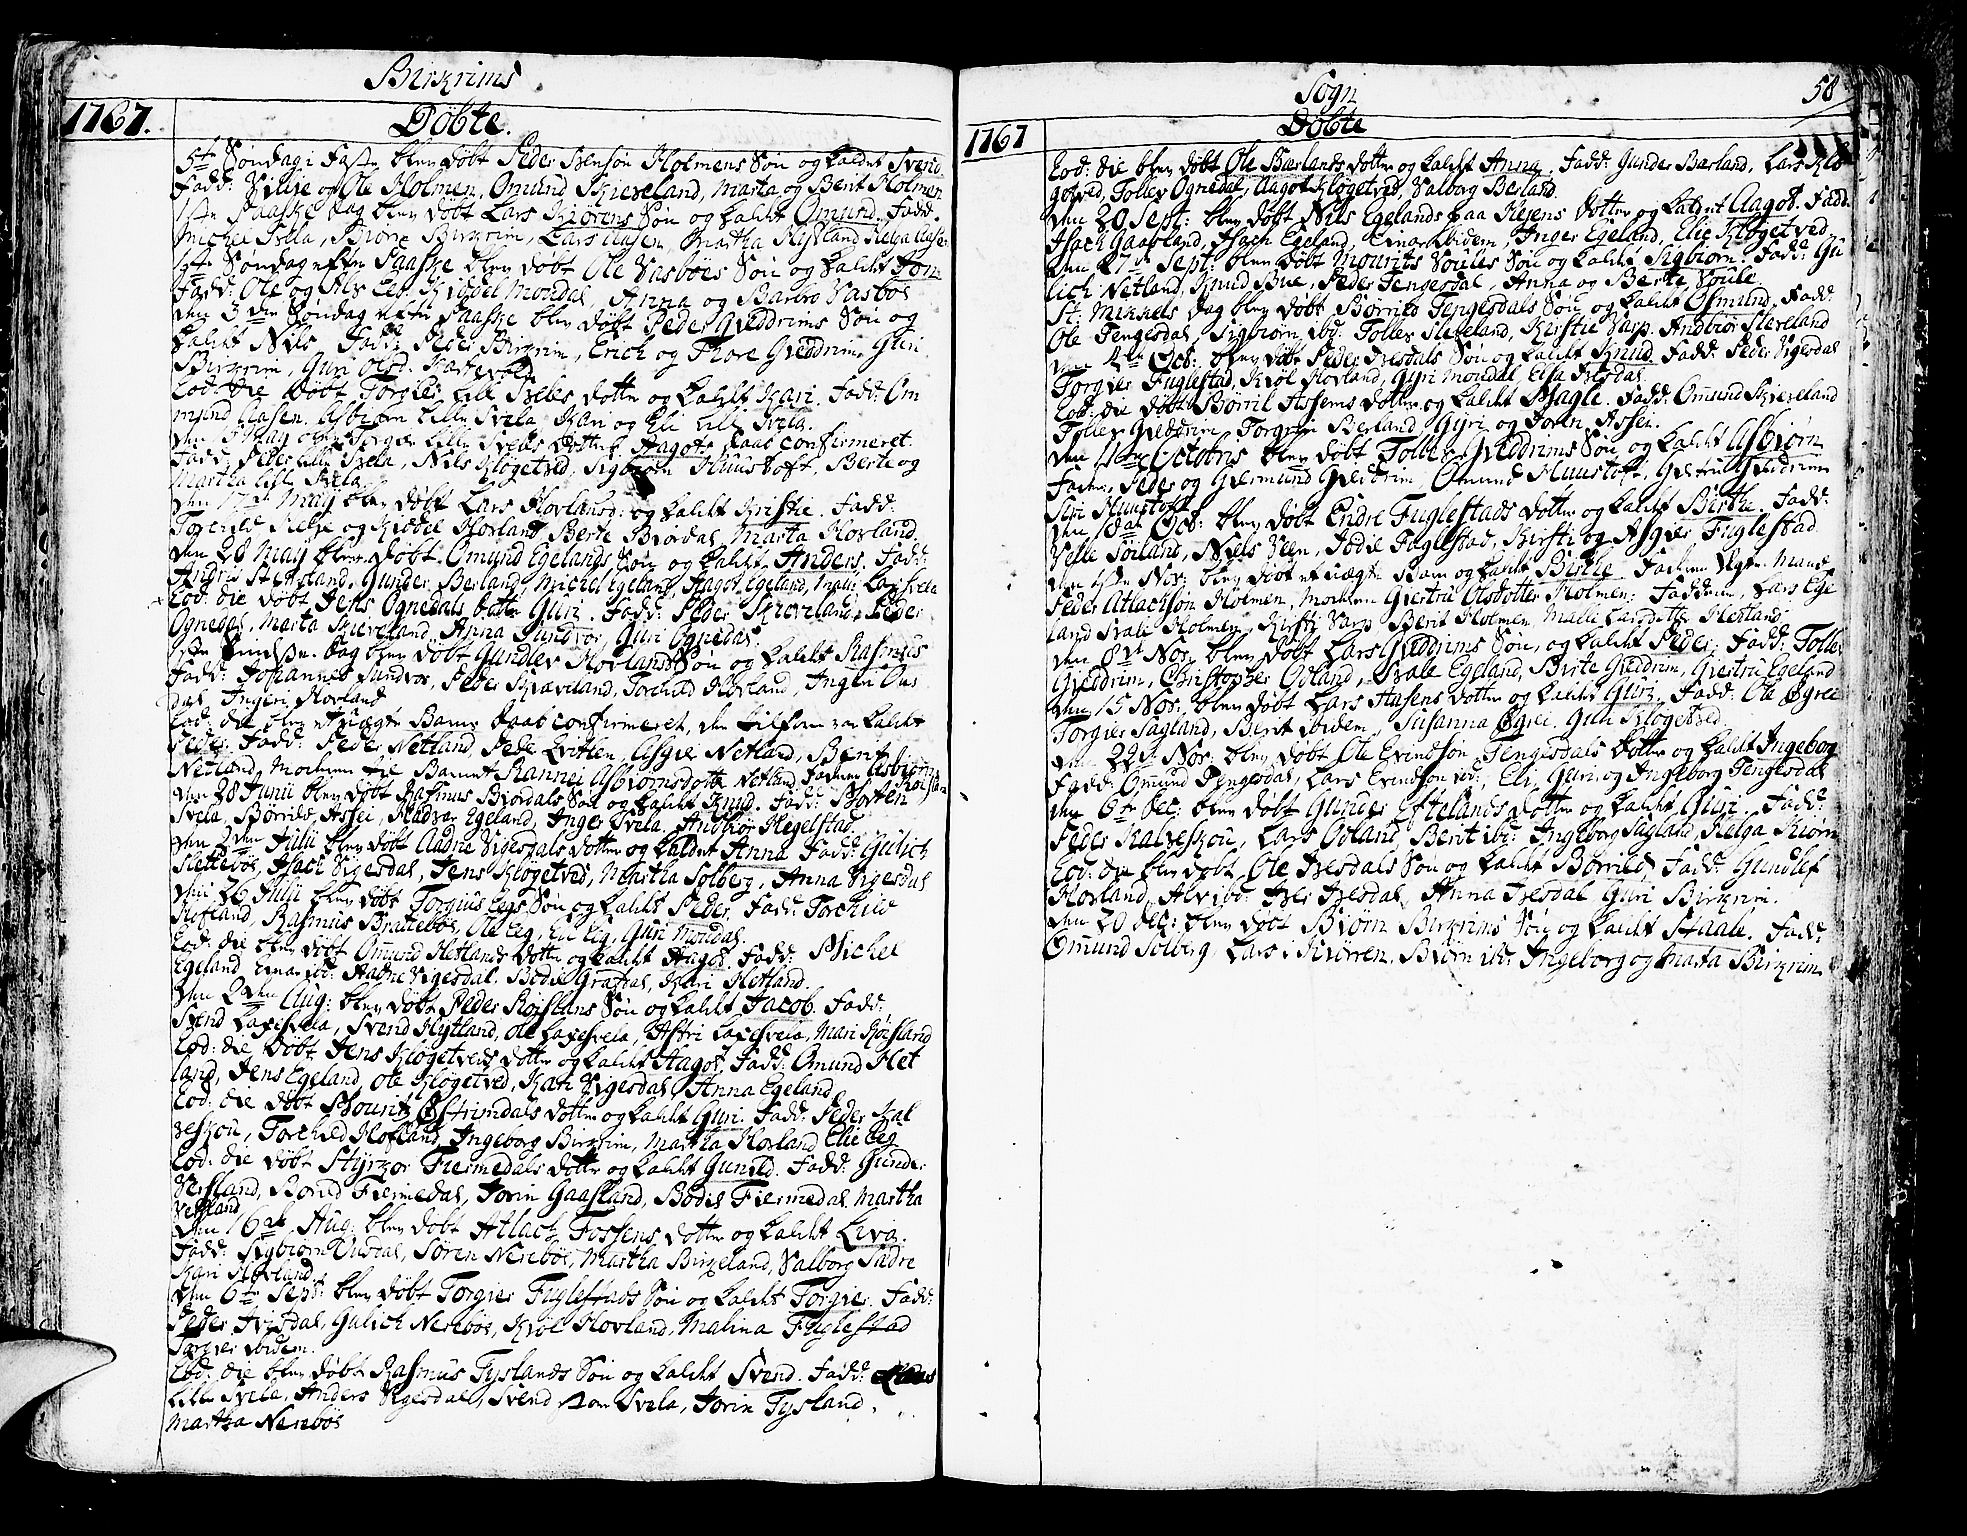 Birkrims
1767. Døbte.
5te Søndag i Faste blev døbt Peder Evensøn Holmens Søn og kaldet Svend
Fadd: Villie og Ole Holmen, Omund Skieveland, Marta og Berit Holmen
1ste Paaske dag blev døbt Lars Kiørens Søn og kaldt Omund. Fadd:
Michel Birkrim, Lars Aasen, Martha Hytland Helga Aasen
1ste Søndag efter Paaske blev døbt Ole Vasboes Søn og kaldt Tom
Fadd: Ole og Als Eeg, Kiødel Mondal, Anna og Barbro Vasboe
den 3die Søndag efter Paaske blev døbt Peder Gieddrims Søn og
kaldt Nils Fadd: Peder Birkrim, Erich og Thore Gieddrim, Guri
Birkrim, Guri Olsd. Hattevold
Eod: die døbt Torgles Lill Svelas dotter og kaldt Kari. Fadd: Om
mund Aasen, Asbiørn Lille Svela, Kari og Eli Lill Svela.
Lille Svelas Dotter Aagot daab confirmeret
Fadd: Peder Lille Svela, Nils Kløgetved, Sigbiørn Huustoft, Berte og
Martha Lill Svela
den 17de May blev døbt Lars Hovlands d: og kaldt Kristie. Fadd:
Torchild Helge og Kiødel Hovland Berte Biordal Marta Hovland.
den 28 May blev døbt Omund Egelands Søn og kaldt Anders. Fadd:
Andris Stensland, Gunder Berland, Michel Egeland, Aagot Egeland, Mali Laxesvela
Eod: die døbt Jens Ognedals datter Guri. Fadd: Peder Skieveland, Peder
Ognedal, Marta Skieveland, Anna Sundvor, Guri Ognedal
dag blev døbt Gundlev Hovlands Søn og kaldt Rasmus
Fadd: Johannes Sundvor, Peder Skæveland, Torchild Hovland, Ingeri Ous
dal Ingeri Hovland
Eod: die blev et uægte Barns daab confirmeret, den tilforn var kaldt
Peder. Fadd: Peder Netland, Peder Qvitlen Asgier Netland, Berit
Netland, Moderen til Barnet Rannei Asbiornsdotter Netland Faderen Asbiørn
den 28 Junii blev døbt Rasmus Biordals Søn og kaldt Knud. Fadd: Morten
Svela, Børrild, Assei, Hadvar Egeland, Inger Svela Andbiør Hegelstad
Julii blev døbt Aadne Vigesdals dotter og kaldet Anna Fadd: Gulich
Slettebøe, Isach Vigesdal, Jens Kløgetved, Martha Solberg, Anna Vigesdal
den 26 Julii blev døbt Torgius Eegs Søn og kaldt Peder. Fadd: Torchild
Hofland, Rasmus Brattebøe, Ole Eeg, Eli Eeg, Guri Mondal
Eod: die blev døbt Omund Hetlands dotter og kaldt Aagot Fadd: Michel
Egeland Einar ibd: Aadne Vigesdal. Bodil Grastal, Kari Hetland.
den 2den Aug: blev døbt Peder Røislans Søn og kaldt Jacob. Fadd:
Svend Laxesvela, Svend Hytland, Ole Laxesvela, Astri Laxesvela, Mari Røisland
Eod: die døbt Jens Kløgetveds dotter og kaldt Aagot. Fadd: Omund Het
land, Jens Egeland, Ole Kløgetved, Kari Vigesdal, Anna Egeland
Eod: die døbt Mourits Østrimdals dotter og kaldt Guri. Fadd: Peder Kal
veskou, Torchild Hofland, Ingeborg Birkrim, Martha Hovland Elie Eeg
Eod: die døbt Styrkor Fiermedals dotter og kaldt Gunild. Fadd: Gunder
Versland, Borild Fiermedal, Jorin Gaasland, Bodil Fiermedal, Martha
Versland
den 16de Aug: blev døbt Atlach Fossens dotter og kaldt Leva.
Fadd: Sigbiørn Virdal, Søren Nesebøe, Martha Birkeland, Valborg Sædre
Kari Hovland
den 6te Sept: blev døbt Torgier Fuglestads Søn og kaldt Torgier. Fadd:
Peder Ivisdal, Gulich Nesebøe, Kiøl Hovland, Malina Fuglestad
Torgier ibidem.
Eod: die blev døbt Rasmus Tyslands Søn og kaldt Svend. Fadd:
Lille Svela, Anders Vigesdal, Svend Svela, Jorin Tysland.
Martha Nesebøe
Sogn 58
1767 Døbte
Eod: die blev døbt Ole Bærlands dotter og kaldt Anna. Fadd: Gunder Bærland, Lars Klø
getved, Tollev Ognedal, Aagot Kløgetved, Valborg Berland.
den 20 Sept: blev døbt Nils Egelands paa Heiens dotter og kaldet Aagot. Fadd:
Isach Gaasland, Isach Egeland, Einar ibidem, Inger Egeland, Elie Kløgetved
den 27de Sept: blev døbt Mourits Soules Søn og kaldt Sigbiørn. Fadd: Gu
lich Netland, Knud Bue, Peder Tengesdal, Anna og Berte Soule.
St: Mikkels dag blev døbt Børrild Tengesdals Søn og kaldt Osmund. Fadd:
Ole Tengesdal, Sigbiørn ibd: Tollev Sleveland, Kirstie Varp. Andbiør Sleveland
den 4de Oct: blev døbt Peder Ivesdals Søn og kaldt Knud. Fadd: Peder Vigesdal
Torgier Fuglestad, Kiøl Hovland, Gyri Mondal, Elsa Ivesdal
Eod: die døbt Børril Assens dotter og kaldt Magle. Fadd: Omund Skieveland
Tollev Gieddrim, Torgrim Berland Gyri og Joren Assen.
den 11te Octobris blev døbt Tolle Gieddrims Søn og kaldt Asbiørn
Fadd: Peder og Giermund Gieddrim, Omund Huustoft, Giertru Gieddrim
Siri Huustoft
den 18de Oct: blev døbt Endre Fuglestads dotter og kaldt Birthe. Fadd:
Velle Søiland, Niels Veen, Jodie Fuglestad, Kirsti og Asgier Fuglestad
den 1ste Nov: blev døbt et uægte Barn og kaldt Birthe Faderen
Peder Atlachsøn Holmen, Moderen Giertru Olsdotter Holmen: Fadderne, Lars Ege
land Svale Holmen, Kirsti Varp, Berit Holmen Malle Larsdotter Hetland
den 8de Nov. blev døbt Lars Gieddrims Søn, og kaldt Peder. Fadd: Tolle
Gieddrim, Christopher Odland, Svale Egeland, Birte Gieddrim, Giertru Egeland
den 15 Nov: blev døbt Lars Aasens dotter og kaldt Guri. Fadd: Ole Øgrei
Torgier Sagland, Berit ibidem, Susanna Øgrei, Guri Kløgetved.
den 22de Nov: blev døbt Ole Evindsøn Tengesdals dotter og kaldt Ingeborg
Fadd: Omund Tengesdal, Lars Evindsøn ibd:, Eli, Guri og Ingeborg Tengesdal
den 6te Dec: blev døbt Gunder Eftelands dotter og kaldt Guri. Fadd:
Peder Kalveskou, Lars Odland, Berit ibd: Ingeborg Sagland, Helga Kiørn
Eod: die blev døbt Ole Ivesdals Søn og kaldt Børrild. Fadd: Gundlef
Hovland, Alv ibd: Iver Ivesdal, Anna Ivesdal Guri Birkrim.
den 20 Dec: blev døbt Biørn Birkrims Søn og kaldt Staale. Fadd:
Omund Solberg, Lars i Kiørren, Biørn ibd: Ingeborg og Marta Birkrim.